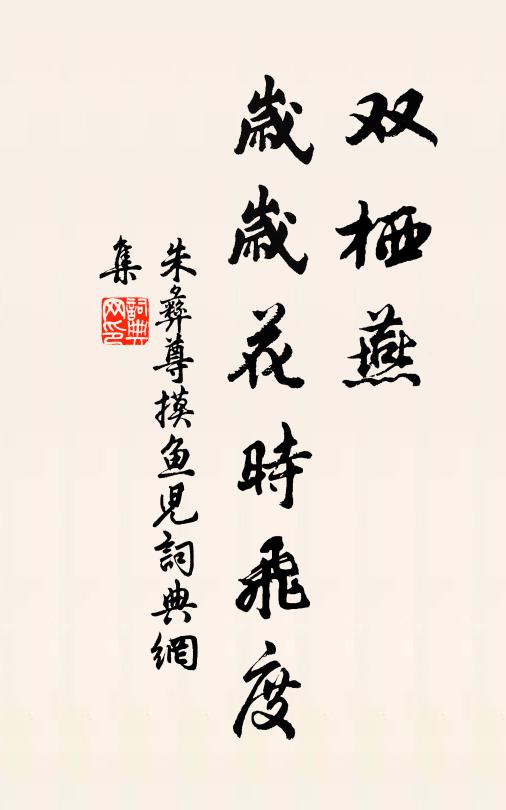 双栖燕
歲歲花時飛度
朱彝尊摸魚児詞典網
集
詞典
网印